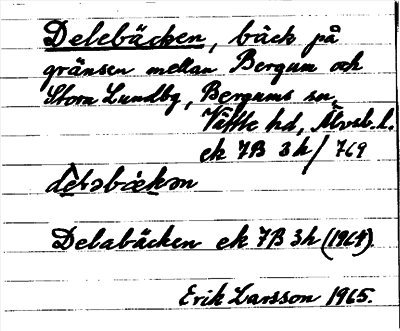 Delebäcken, bäck på
gränsen mellan Bergum och
Stora Lundby, Bergums sn,
Vättle hd, Älvsb. l.
ek 7B 3h/ 769
Delabäcken ek 7B 3h (1964)
Erik Larsson 1965.